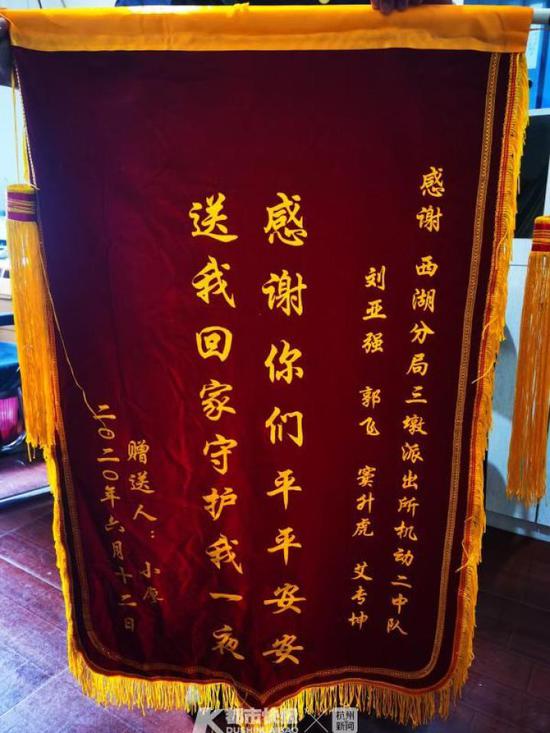 感谢 西湖分局三墩派出所机动二中队
刘亚强 郭飞 窦升虎 艾专坤
感谢你们平平安安
送我回家守护我一夜
赠送人：小厚
二〇二〇年六月十二日
都市快报
DUSHIKUAIBAO
×
杭州
新闻